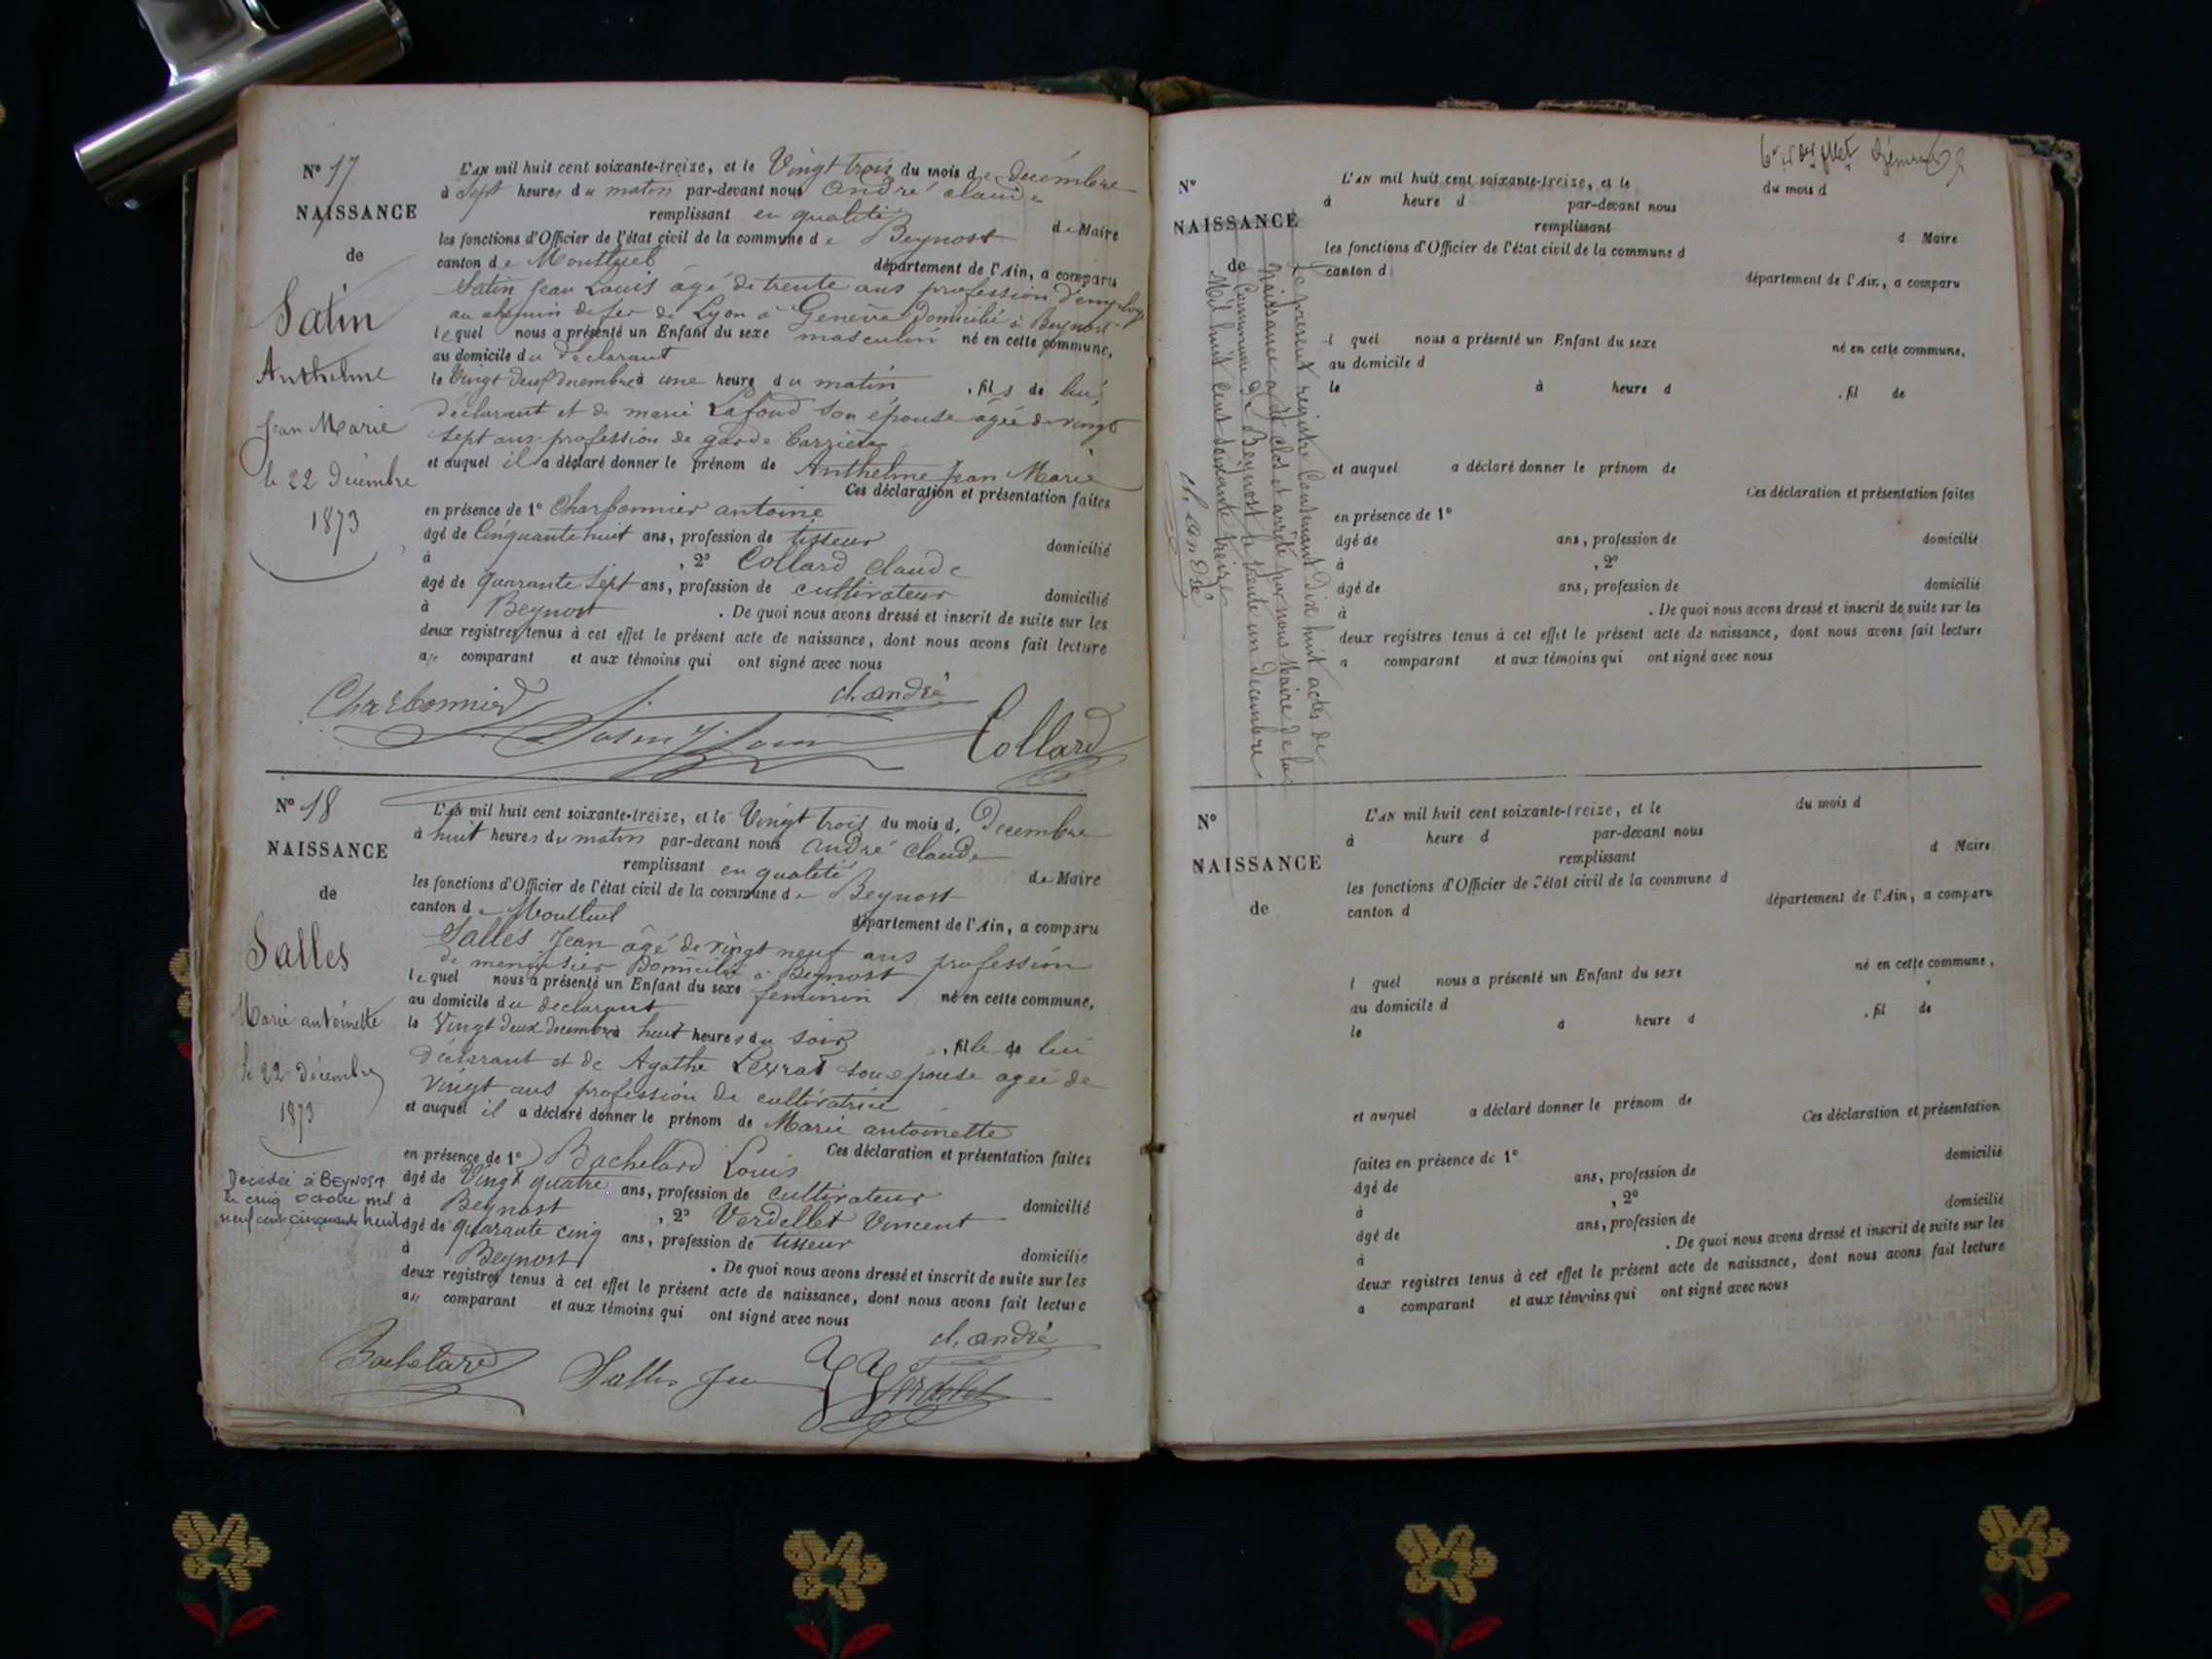 N° 17
NAISSANCE
de
Satin
Anthelme
Jean Marie
le 22 Décembre
1873
L'AN mil huit cent soixante-treize, et le Vingt trois du mois de decembre
à Sept heures du matin par-devant nous andré claude
remplissant en qualité de Maire
les fonctions d'Officier de l'état civil de la commune de Beynost
canton de Montluel département de l'Ain, a comparu
Satin Jean Louis âgé de trente ans profession d'employé
au chemin de fer de Lyon à Genève Domicilié à Beynost
lequel nous a présenté un Enfant du sexe masculin né en cette commune,
au domicile du déclarant
le Vingt deux decembre à une heure du matin , fils de lui,
déclarant et de marie Lafond son épouse âgée de vingt
sept ans profession de garde barrière
et auquel il a déclaré donner le prénom de Anthelme Jean Marie
Ces déclaration et présentation faites
en présence de 1° Charbonnier antoine
âgé de Cinquante huit ans, profession de tisseur domicilié
à , 2° Collard claude
âgé de quarante sept ans, profession de cultivateur domicilié
à Beynost . De quoi nous avons dressé et inscrit de suite sur les
deux registres tenus à cet effet le présent acte de naissance, dont nous avons fait lecture
au comparant et aux témoins qui ont signé avec nous
cl. andré
Charbonnier
Collard
N° 18
NAISSANCE
de
Salles
Marie antoinette
le 22 décembre
1873
Decedée à BEYNOST
le cinq octobre mil
neuf cent cinquante huit
L'AN mil huit cent soixante-treize, et le Vingt trois du mois d. Decembre
à huit heures du matin par-devant nous andré Claude
remplissant en qualité de Maire
les fonctions d'Officier de l'état civil de la commune de Beynost
canton de Montluel département de l'Ain, a comparu
Salles Jean âgé de vingt neuf ans profession
de menuisier Domicilié à Beynost
lequel nous a présenté un Enfant du sexe feminin né en cette commune,
au domicile du declarant
le Vingt deux decembre à huit heures du soir , fille de lui
déclarant et de Agathe Levrat son epouse agée de
vingt ans profession de cultivatrice
et auquel il a déclaré donner le prénom de Marie antoinette
Ces déclaration et présentation faites
en présence de 1° Bachelard Louis
âgé de Vingt quatre ans, profession de cultivateur domicilié
à Beynost , 2° Verdellet Vincent
âgé de quarante cinq ans, profession de tisseur domicilié
à Beynost . De quoi nous avons dressé et inscrit de suite sur les
deux registres tenus à cet effet le présent acte de naissance, dont nous avons fait lecture
au comparant et aux témoins qui ont signé avec nous
cl. andré
Bachelard
Salles
Verdelet
N°
NAISSANCE
de
L'AN mil huit cent soixante-treize, et le du mois d
à heure d par-devant nous
remplissant d Maire
les fonctions d'Officier de l'état civil de la commune d
canton d département de l'Ain, a comparu
l quel nous a présenté un Enfant du sexe né en cette commune,
au domicile d
le à heure d , fil de
et auquel a déclaré donner le prénom de
Ces déclaration et présentation faites
en présence de 1°
âgé de ans, profession de domicilié
à , 2°
âgé de ans, profession de domicilié
à . De quoi nous avons dressé et inscrit de suite sur les
deux registres tenus à cet effet le présent acte de naissance, dont nous avons fait lecture
a comparant et aux témoins qui ont signé avec nous
Le present registre Contenant Dix huit actes de
Naissance a été clos et arrêté par nous Maire de la
Commune de Beynost le trente un decembre
Mil huit Cent soixante treize
cl. andré
N°
NAISSANCE
de
L'AN mil huit cent soixante-treize, et le du mois d
à heure d par-devant nous
remplissant d Maire
les fonctions d'Officier de l'état civil de la commune d
canton d département de l'Ain, a comparu
l quel nous a présenté un Enfant du sexe né en cette commune,
au domicile d
le à heure d , fil de
et auquel a déclaré donner le prénom de
Ces déclaration et présentation
faites en présence de 1°
âgé de ans, profession de domicilié
à , 2°
âgé de ans, profession de domicilié
à . De quoi nous avons dressé et inscrit de suite sur les
deux registres tenus à cet effet le présent acte de naissance, dont nous avons fait lecture
a comparant et aux témoins qui ont signé avec nous